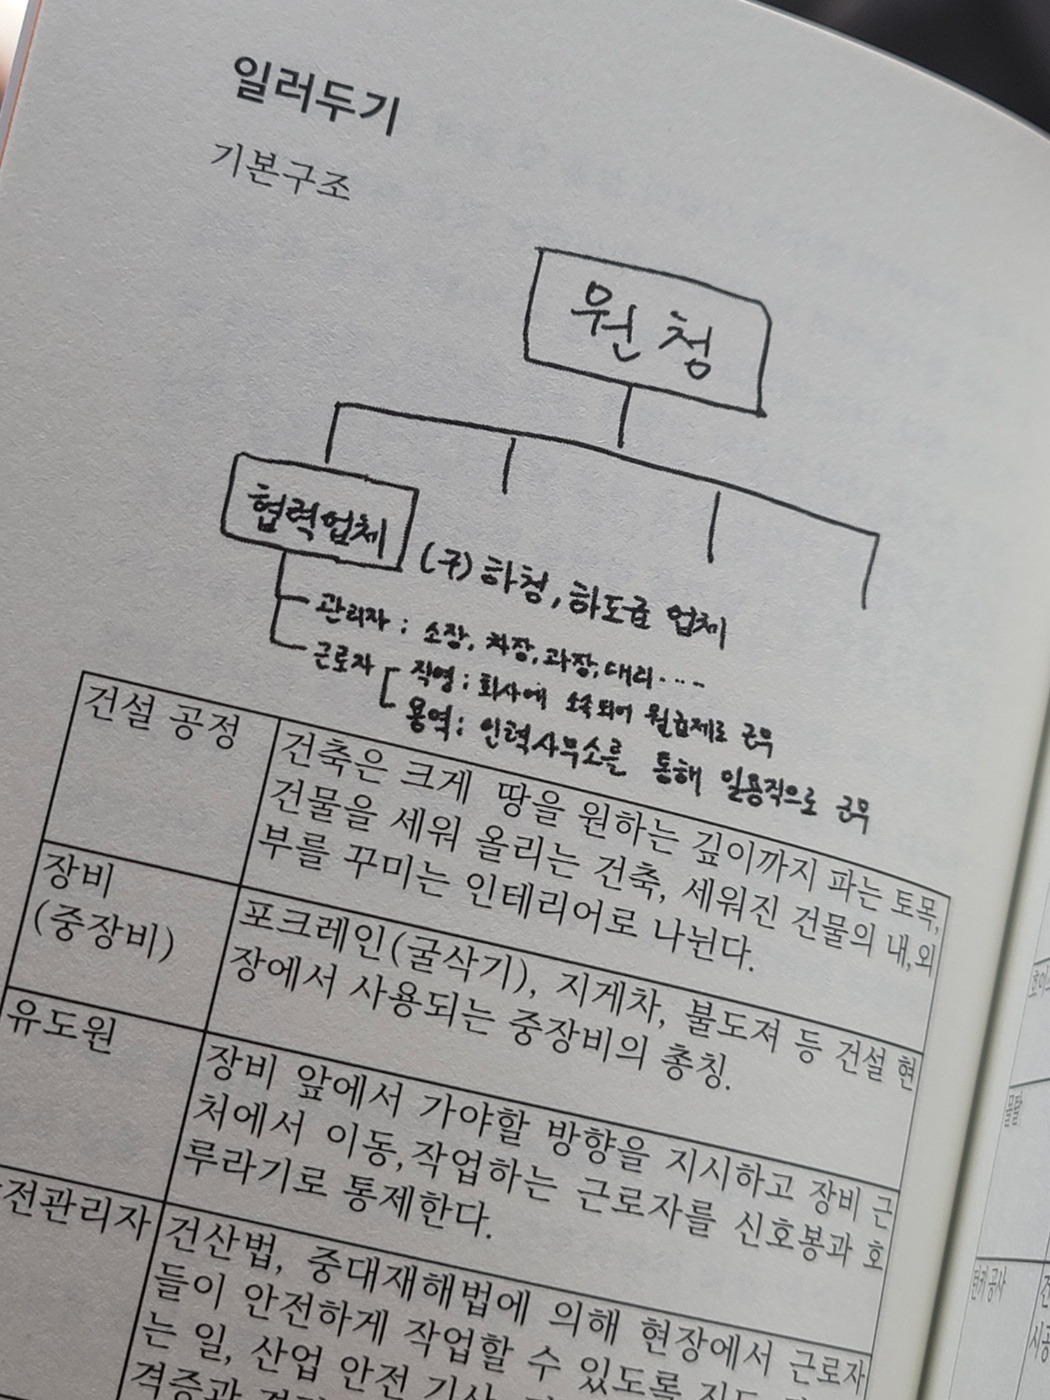 일러두기
기본구조
원청
협력업체 (구) 하청, 하도급 업체
관리자 : 소장, 차장, 과장, 대리 ....
근로자 직영 : 회사에 소속되어 월급제로 근무
용역 : 인력사무소를 통해 일용직으로 근무
건설 공정
건축은 크게 땅을 원하는 깊이까지 파는 토목,
건물을 세워 올리는 건축, 세워진 건물의 내,외
부를 꾸미는 인테리어로 나뉜다.
장비
(중장비)
포크레인(굴삭기), 지게차, 불도져 등 건설 현
장에서 사용되는 중장비의 총칭.
유도원
장비 앞에서 가야할 방향을 지시하고 장비 근
처에서 이동,작업하는 근로자를 신호봉과 호
루라기로 통제한다.
전관리자
건산법, 중대재해법에 의해 현장에서 근로자
들이 안전하게 작업할 수 있도록
는 일, 산업 안전 기사,
공사